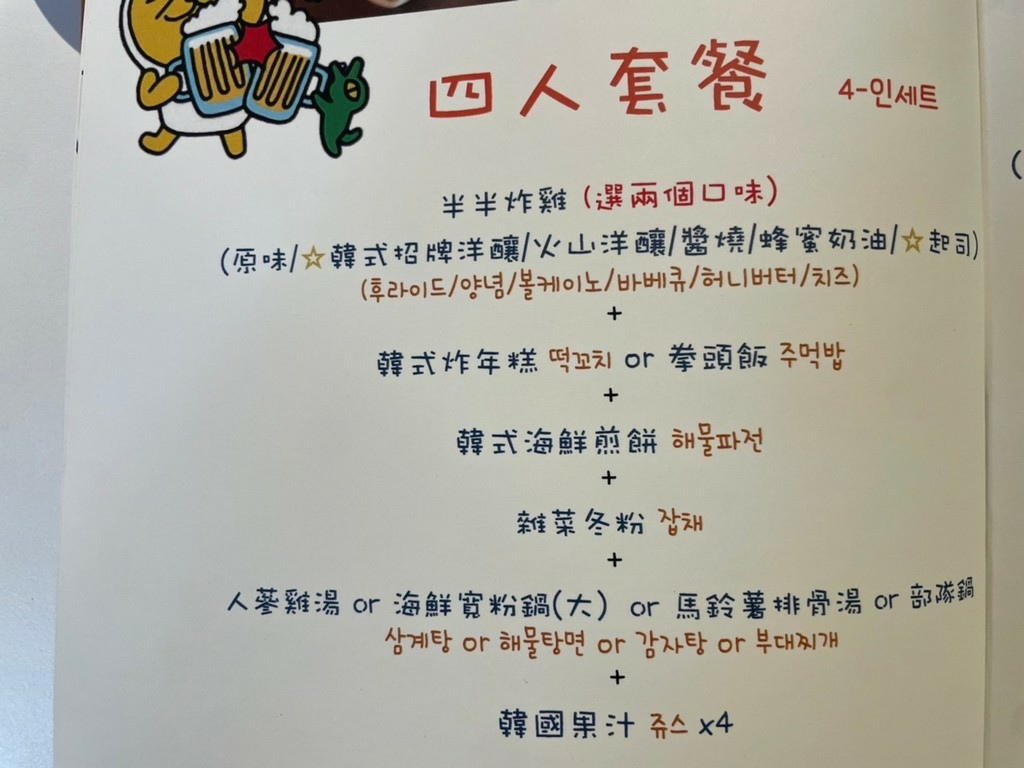 四人套餐 4-인세트
半半炸雞 (選兩個口味)
(原味/☆韓式招牌洋釀/火山洋釀/醬燒/蜂蜜奶油/☆起司)
(후라이드/양념/볼케이노/바베큐/허니버터/치즈)
+
韓式炸年糕 떡꼬치 or 拳頭飯 주먹밥
+
韓式海鮮煎餅 해물파전
+
雜菜冬粉 잡채
+
人蔘雞湯 or 海鮮寬粉鍋(大) or 馬鈴薯排骨湯 or 部隊鍋
삼계탕 or 해물탕면 or 감자탕 or 부대찌개
+
韓國果汁 쥬스 x4